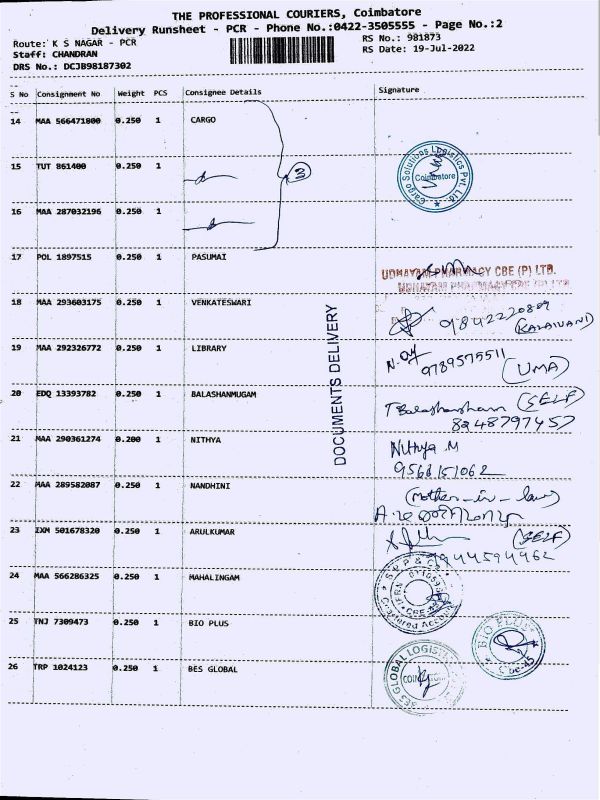 THE PROFESSIONAL COURIERS, Coimbatore
Delivery Runsheet - PCR - Phone No.:0422-3505555 - Page No.:2
Route: K S NAGAR - PCR
RS No.: 981873
Staff: CHANDRAN
RS Date: 19-Jul-2022
DRS No.: DCJB98187302
S No Consignment No Weight PCS Consignee Details Signature
14 MAA 566471800 0.250 1 CARGO
Cargo Solutions Logistics Pvt. Ltd.
Coimbatore
15 TUT 861400 0.250 1
3
16 MAA 287032196 0.250 1
17 POL 1897515 0.250 1 PASUMAI
UDHAYAM PHARMACY CBE (P) LTD.
UDHAYAM PHARMACY CBE (P) LTD
18 MAA 293603175 0.250 1 VENKATESWARI
9842220809
(KALAIVANI)
DOCUMENTS DELIVERY
19 MAA 292326772 0.250 1 LIBRARY
9789575511
(UMA)
20 EDQ 13393782 0.250 1 BALASHANMUGAM
(SELF)
8248797457
21 MAA 290361274 0.200 1 NITHYA
Nithya M
9566151062
22 MAA 289582087 0.250 1 NANDHINI
(mother-in-law)
23 IXM 501678320 0.250 1 ARULKUMAR
(SELF)
9944594462
24 MAA 566286325 0.250 1 MAHALINGAM
25 TNJ 7309473 0.250 1 BIO PLUS
BIO PLUS
Cbe-45
26 TRP 1024123 0.250 1 BES GLOBAL
BES GLOBAL LOGISTICS